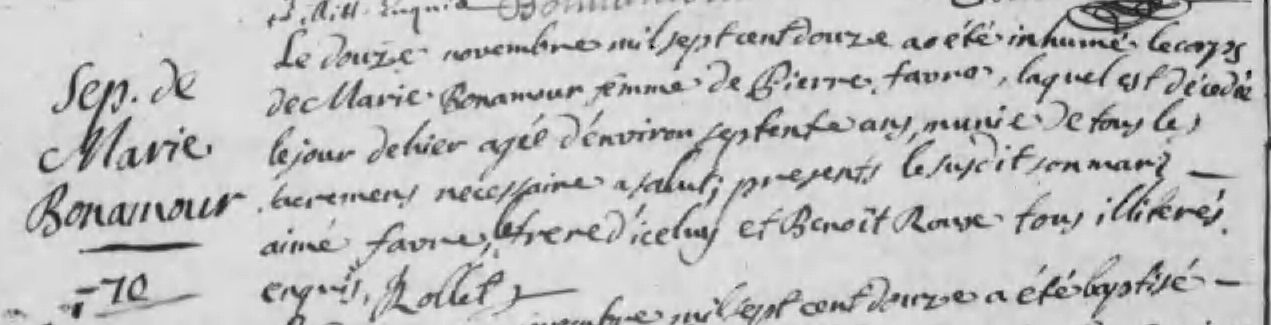 Sep. de
Marie
Bonamour
70
Le douze novembre mil sept cent douze a été inhumé le corps
de Marie Bonamour femme de Pierre favre, laquel est décedée
le jour dehier agéé d'énviron septente ans, munie de tous les
sacremens necessaire a salut; presents le susdit son mary
aimé favre, frere d'iceluy et Benoît Roux tous illiterés.
enquis. Rollet
mil sept cent douze a été baptisé